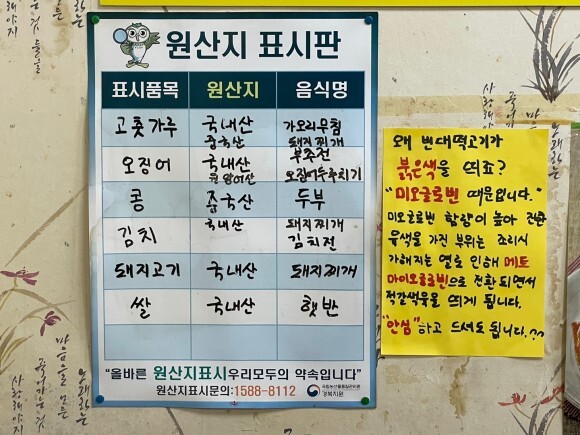 원산지 표시판
표시품목 원산지 음식명
고춧가루 국내산 중국산 가오리무침 돼지찌개
오징어 국내산 원양어산 부추전 오징어두루치기
콩 중국산 두부
김치 국내산 돼지찌개 김치전
돼지고기 국내산 돼지찌개
쌀 국내산 햇반
"올바른 원산지표시 우리모두의 약속입니다"
원산지표시문의:1588-8112
국립농산물품질관리원
경북지원
왜 번대떡고기가
붉은색을 띄죠?
"미오글로빈 때문입니다."
미오글로빈 함량이 높아 진한
육색을 가진 부위는 조리시
가해지는 열로 인해 메토
마이오글로빈으로 전환되면서
적갈색육을 띄게 됩니다.
"안심"하고 드셔도 됩니다.^^